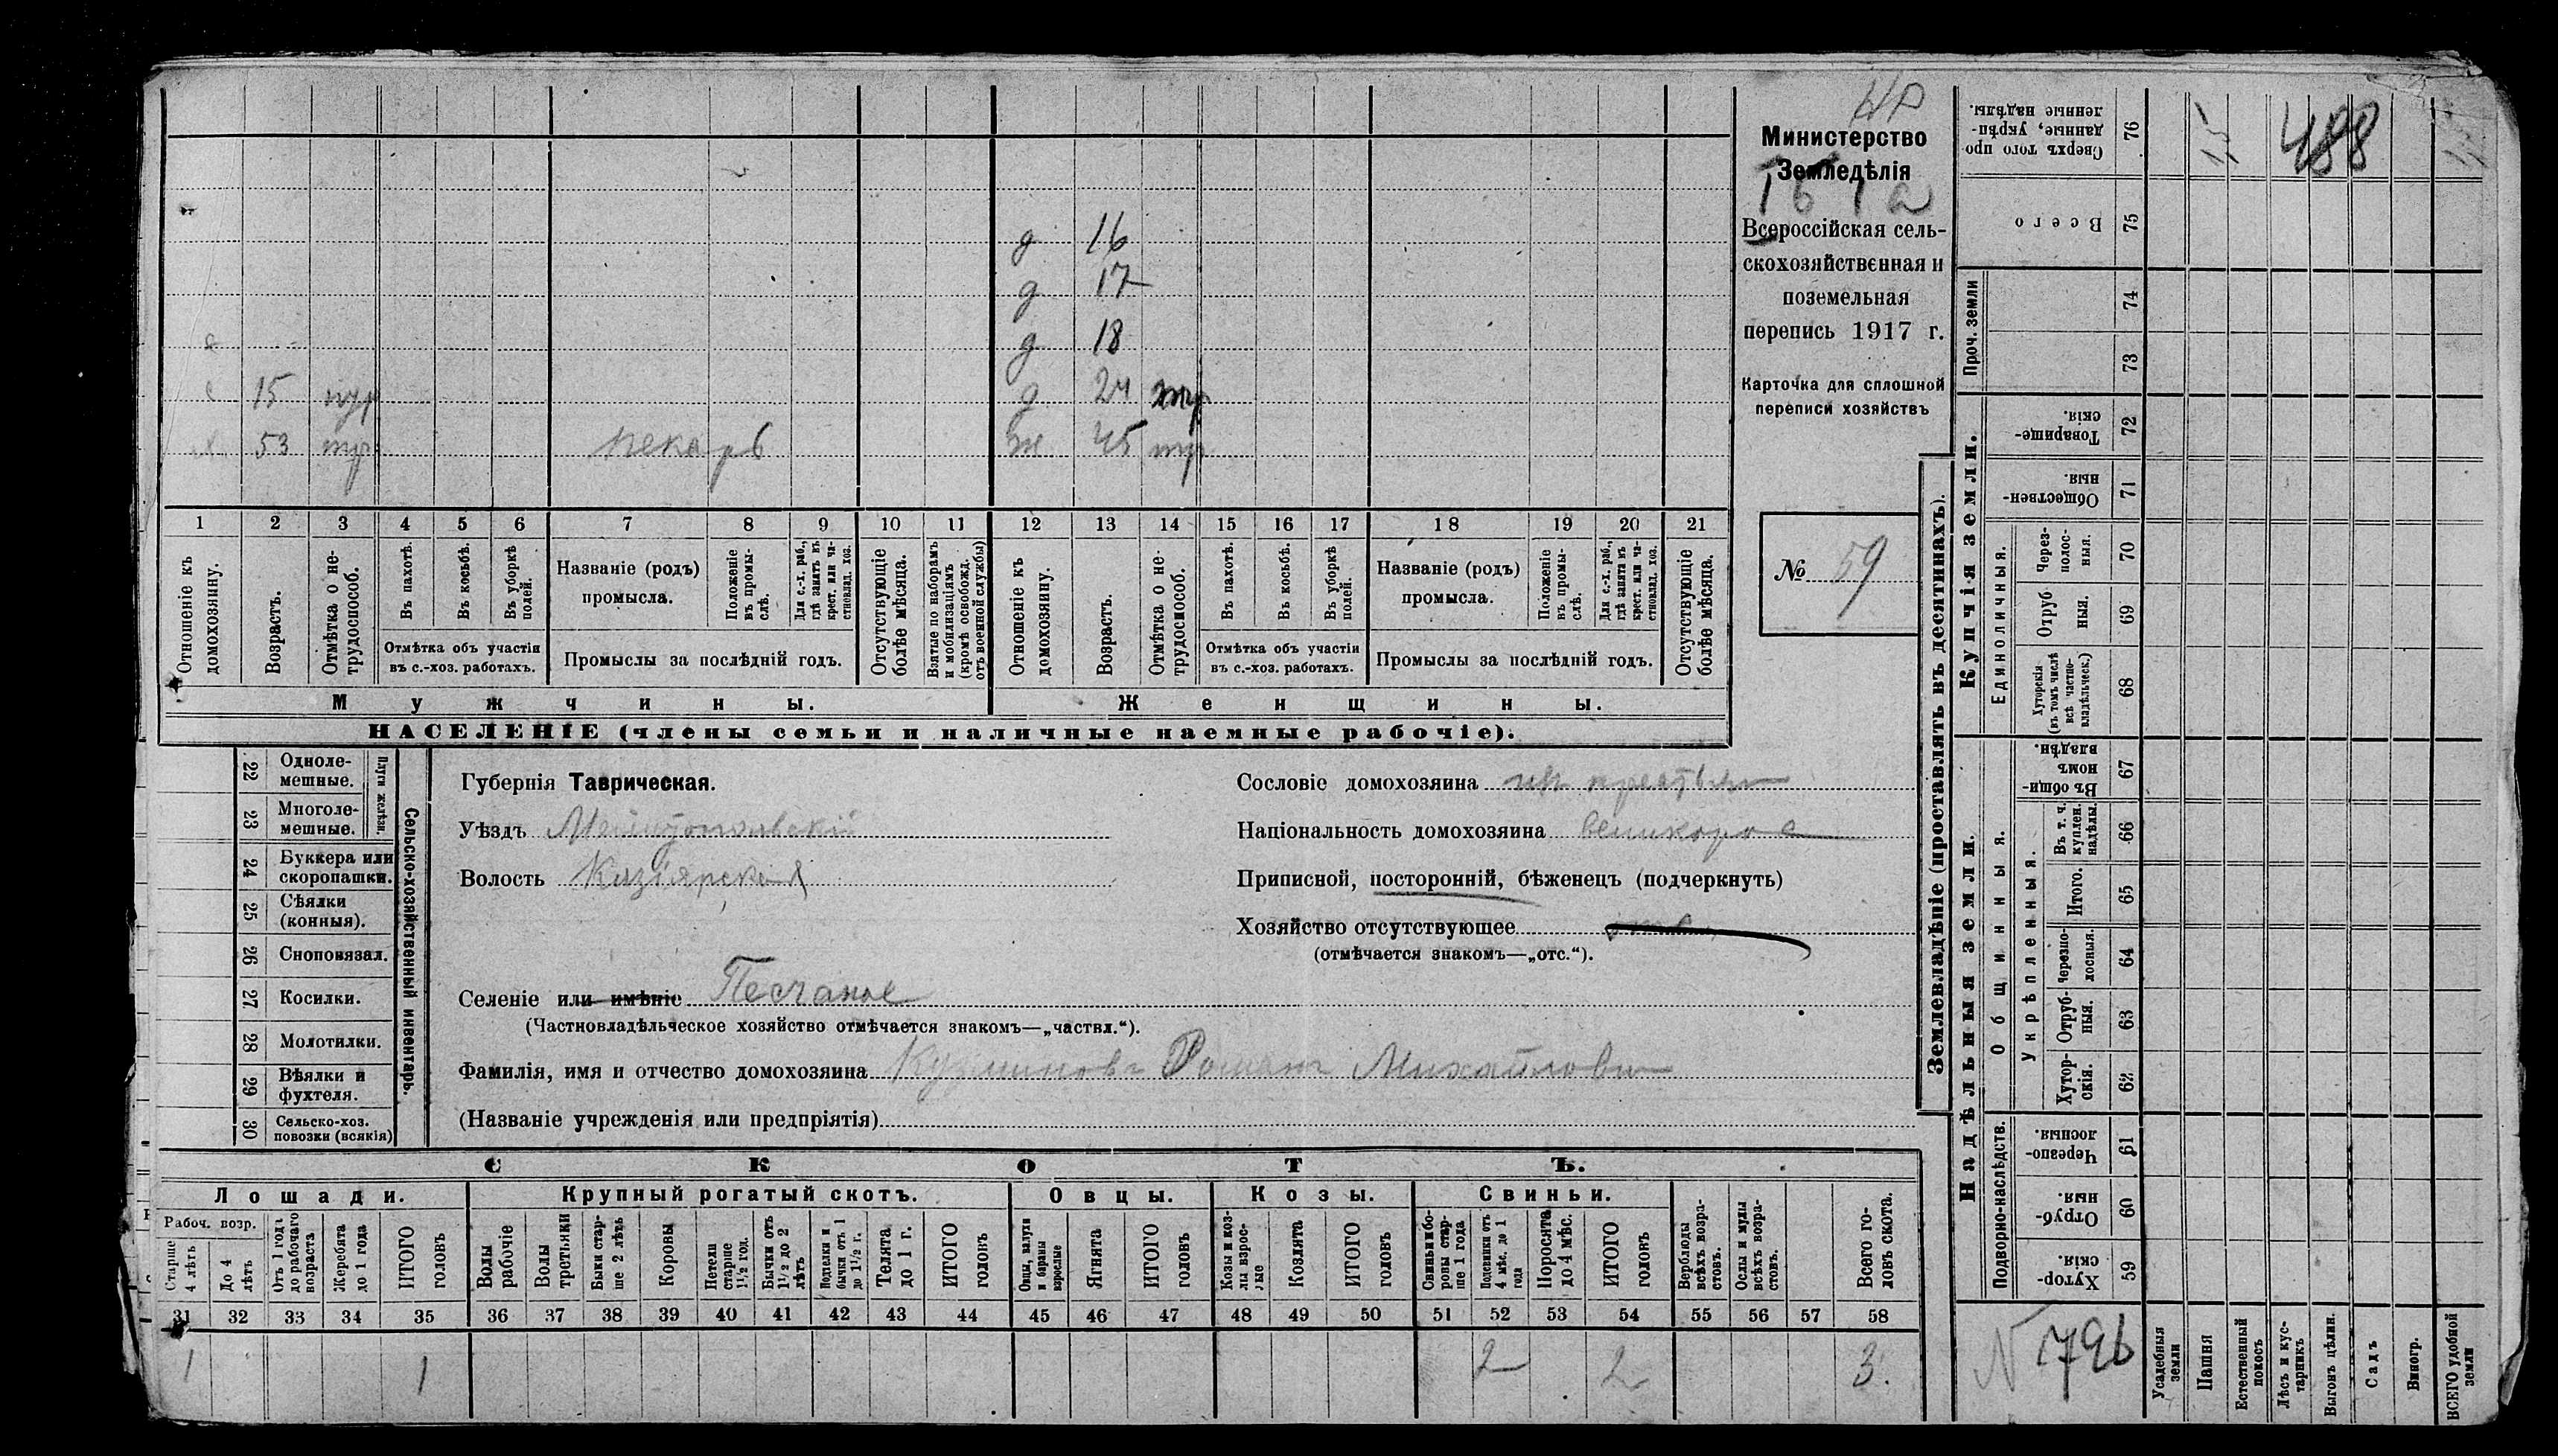 НР
Министерство
Земледѣлія
Всероссійская сель-
скохозяйственная и
поземельная
перепись 1917 г.
Карточка для сплошной
переписи хозяйствъ
№ 59
д 16
д 17
д 18
15 д 24 тр
53 пекарь ж 45 тр
1 2 3 4 5 6 7 8 9 10 11 12 13 14 15 16 17 18 19 20 21
Отношеніе къ домохозяину.
Возрастъ.
Отмѣтка о не-трудоспособ.
Въ пахотѣ.
Въ косьбѣ.
Въ уборкѣ полей.
Отмѣтка объ участіи
въ с.-хоз. работахъ.
Названіе (родъ)
промысла.
Положеніе въ промы-слѣ.
Для с.-х. раб., гдѣ занятъ въ крест. или ча-стновлад. хоз.
Промыслы за послѣдній годъ.
Отсутствующіе болѣе мѣсяца.
Взятые по наборамъ и мобилизаціямъ (кромѣ освобожд. отъ военной службы)
Отношеніе къ домохозяину.
Возрастъ.
Отмѣтка о не-трудоспособ.
Въ пахотѣ.
Въ косьбѣ.
Въ уборкѣ полей.
Отмѣтка объ участіи
въ с.-хоз. работахъ.
Названіе (родъ)
промысла.
Положеніе въ промы-слѣ.
Для с.-х. раб., гдѣ занята въ крест. или ча-стновлад. хоз.
Промыслы за послѣдній годъ.
Отсутствующіе болѣе мѣсяца.
Мужчины. Женщины.
НАСЕЛЕНІЕ (члены семьи и наличные наемные рабочіе).
22 Одноле-мешные.
23 Многоле-мешные.
Плуги желѣзн.
24 Буккера или скоропашки.
25 Сѣялки (конныя).
26 Сноповязал.
27 Косилки.
28 Молотилки.
29 Вѣялки и фухтеля.
30 Сельско-хоз. повозки (всякія)
Сельско-хозяйственный инвентарь.
Губернія Таврическая.
Уѣздъ Мелитопольскій
Волость Кизіярская
Сословіе домохозяина
Національность домохозяина великорос
Приписной, посторонній, бѣженецъ (подчеркнуть)
Хозяйство отсутствующее
(отмѣчается знакомъ—„отс.“).
Селеніе или имѣніе Песчаное
(Частновладѣльческое хозяйство отмѣчается знакомъ—„частвл.“).
Фамилія, имя и отчество домохозяина Романъ Михайлович
(Названіе учрежденія или предпріятія)
СКОТЪ.
Лошади. Крупный рогатый скотъ. Овцы. Козы. Свиньи.
Рабоч. возр.
Старше 4 лѣтъ
До 4 лѣтъ
Отъ 1 года до рабочаго возраста
Жеребята до 1 года
ИТОГО головъ
Волы рабочіе
Волы третьяки
Быки стар-ше 2 лѣтъ
Коровы
Нетели старше 1½ год.
Бычки отъ 1½ до 2 лѣтъ
Подтелки и бычки отъ 1 до 1½ г.
Телята до 1 г.
ИТОГО головъ
Овцы, валухи и бараны взрослые
Ягнята
ИТОГО головъ
Козы и коз-лы взрос-лые
Козлята
ИТОГО головъ
Свиньи бо-ровы стар-ше 1 года
Подсвинки отъ 4 мѣс. до 1 года
Поросята до 4 мѣс.
ИТОГО головъ
Верблюды всѣхъ возра-стовъ.
Ослы и мулы всѣхъ возра-стовъ.
Всего го-ловъ скота.
31 32 33 34 35 36 37 38 39 40 41 42 43 44 45 46 47 48 49 50 51 52 53 54 55 56 57 58
1 1 2 2 3
Землевладѣніе (проставлять въ десятинахъ).
Надѣльныя земли. Купчія земли. Проч. земли
Подворно-наслѣдств.
Общинныя.
Укрѣпленныя.
Единоличныя.
Сверхъ того про-данные, укрѣп-ленные надѣлы. 76
Всего 75
74
73
Товарище-скія. 72
Обществен-ныя 71
Через-полос-ныя. 70
Отруб-ныя. 69
Хуторскія (въ томъ числѣ всѣ частно-владѣльческ.) 68
Въ общи-номъ владѣн. 67
Въ т. ч. куплен. надѣлы 66
Итого. 65
Черезпо-лосныя. 64
Отруб-ныя. 63
Хутор-скія. 62
Черезпо-лосныя. 61
Отруб-ныя. 60
Хутор-скія. 59
488
N 1796
Усадебныя земли
Пашня
Естественный покосъ
Лѣсъ и кус-тарникъ
Выгонъ цѣлин.
Садъ
Виногр.
ВСЕГО удобной земли